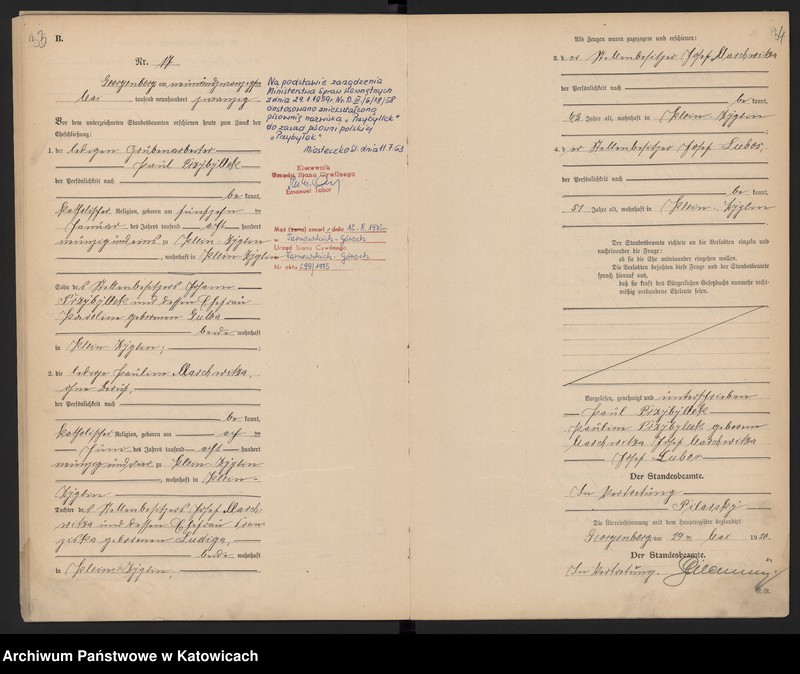 33
B.
Nr. 17
Georgenberg am neunundzwanzigsten
Mai tausend neunhundert zwanzig
Vor dem unterzeichneten Standesbeamten erschienen heute zum Zweck der
Eheschließung:
1. der ledigen Grubenarbeiter
Paul Przybyllek
der Persönlichkeit nach
be kannt,
katholischer Religion, geboren am fünfzehnten
Januar des Jahres tausend acht hundert
neunzig und eins zu Klein-Zyglin
, wohnhaft in Klein-Zyglin
Sohn des Stellenbesitzers Johann
Przybyllek und dessen Ehefrau
Karoline geborenen Gulba
beide wohnhaft
in Klein Zyglin;
2. die ledige Pauline Maschwitza,
ohne Beruf,
der Persönlichkeit nach
be kannt,
katholischer Religion, geboren am
Juni des Jahres tausend acht hundert
neunzig und vier zu Klein Zyglin
, wohnhaft in Klein-
Zyglin
Tochter des Stellenbesitzers Josef Masch-
witza und dessen Ehefrau Fran-
ziska geborenen Ludiga,
beide wohnhaft
in Klein-Zyglin.
Na podstawie zarządzenia
Ministerstwa Spraw Wewnętrznych
z dnia 29.1.1959r. Nr.
dostosowano zniekształconą
pisownię nazwiska „Przybyllok"
do zasad pisowni polskiej
„Przybyłok"
Miasteczko Śl. dnia 11.7.63
Kierownik
Urzędu Stanu Cywilnego
Emanuel Tobor
Mąż (żona) zmarł z dnia 12.8.1975r
w Tarnowskich-Górach
Urząd Stanu Cywilnego
Tarnowskich-Górach
Nr aktu 699/1975
34
Als Zeugen waren zugezogen und erschienen:
3. der Stellenbesitzer Josef Maschwitza
der Persönlichkeit nach
be kannt,
62 Jahre alt, wohnhaft in Klein Zyglin
;
4. der Stellenbesitzer Josef Lubos,
der Persönlichkeit nach
be kannt,
51 Jahre alt, wohnhaft in Klein-Zyglin
Der Standesbeamte richtete an die Verlobten einzeln und
nacheinander die Frage:
ob sie die Ehe miteinander eingehen wollen.
Die Verlobten bejahten diese Frage und der Standesbeamte
sprach hierauf aus,
daß sie kraft des Bürgerlichen Gesetzbuchs nunmehr recht-
mäßig verbundene Eheleute seien.
Vorgelesen, genehmigt und unterschrieben
Paul Przybyllek
Pauline Przybyllek geborene
Maschwitza Josef Maschwitza
Josef Lubos
Der Standesbeamte.
In Vertretung
Pilarsky
Die Übereinstimmung mit dem Hauptregister beglaubigt
Georgenberg am 29ten Mai 1920.
Der Standesbeamte.
In Vertretung.
Archiwum Państwowe w Katowicach